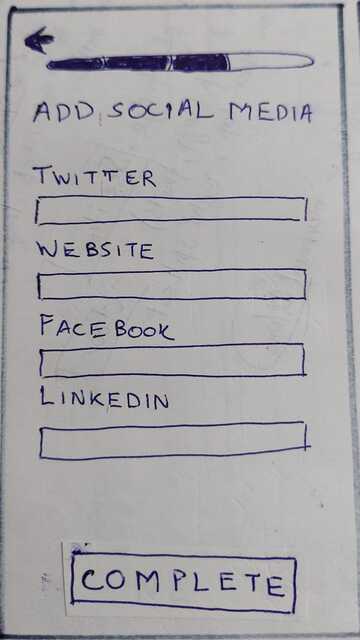 ADD SOCIAL MEDIA
TWITTER
WEBSITE
FACEBOOK
LINKEDIN
COMPLETE